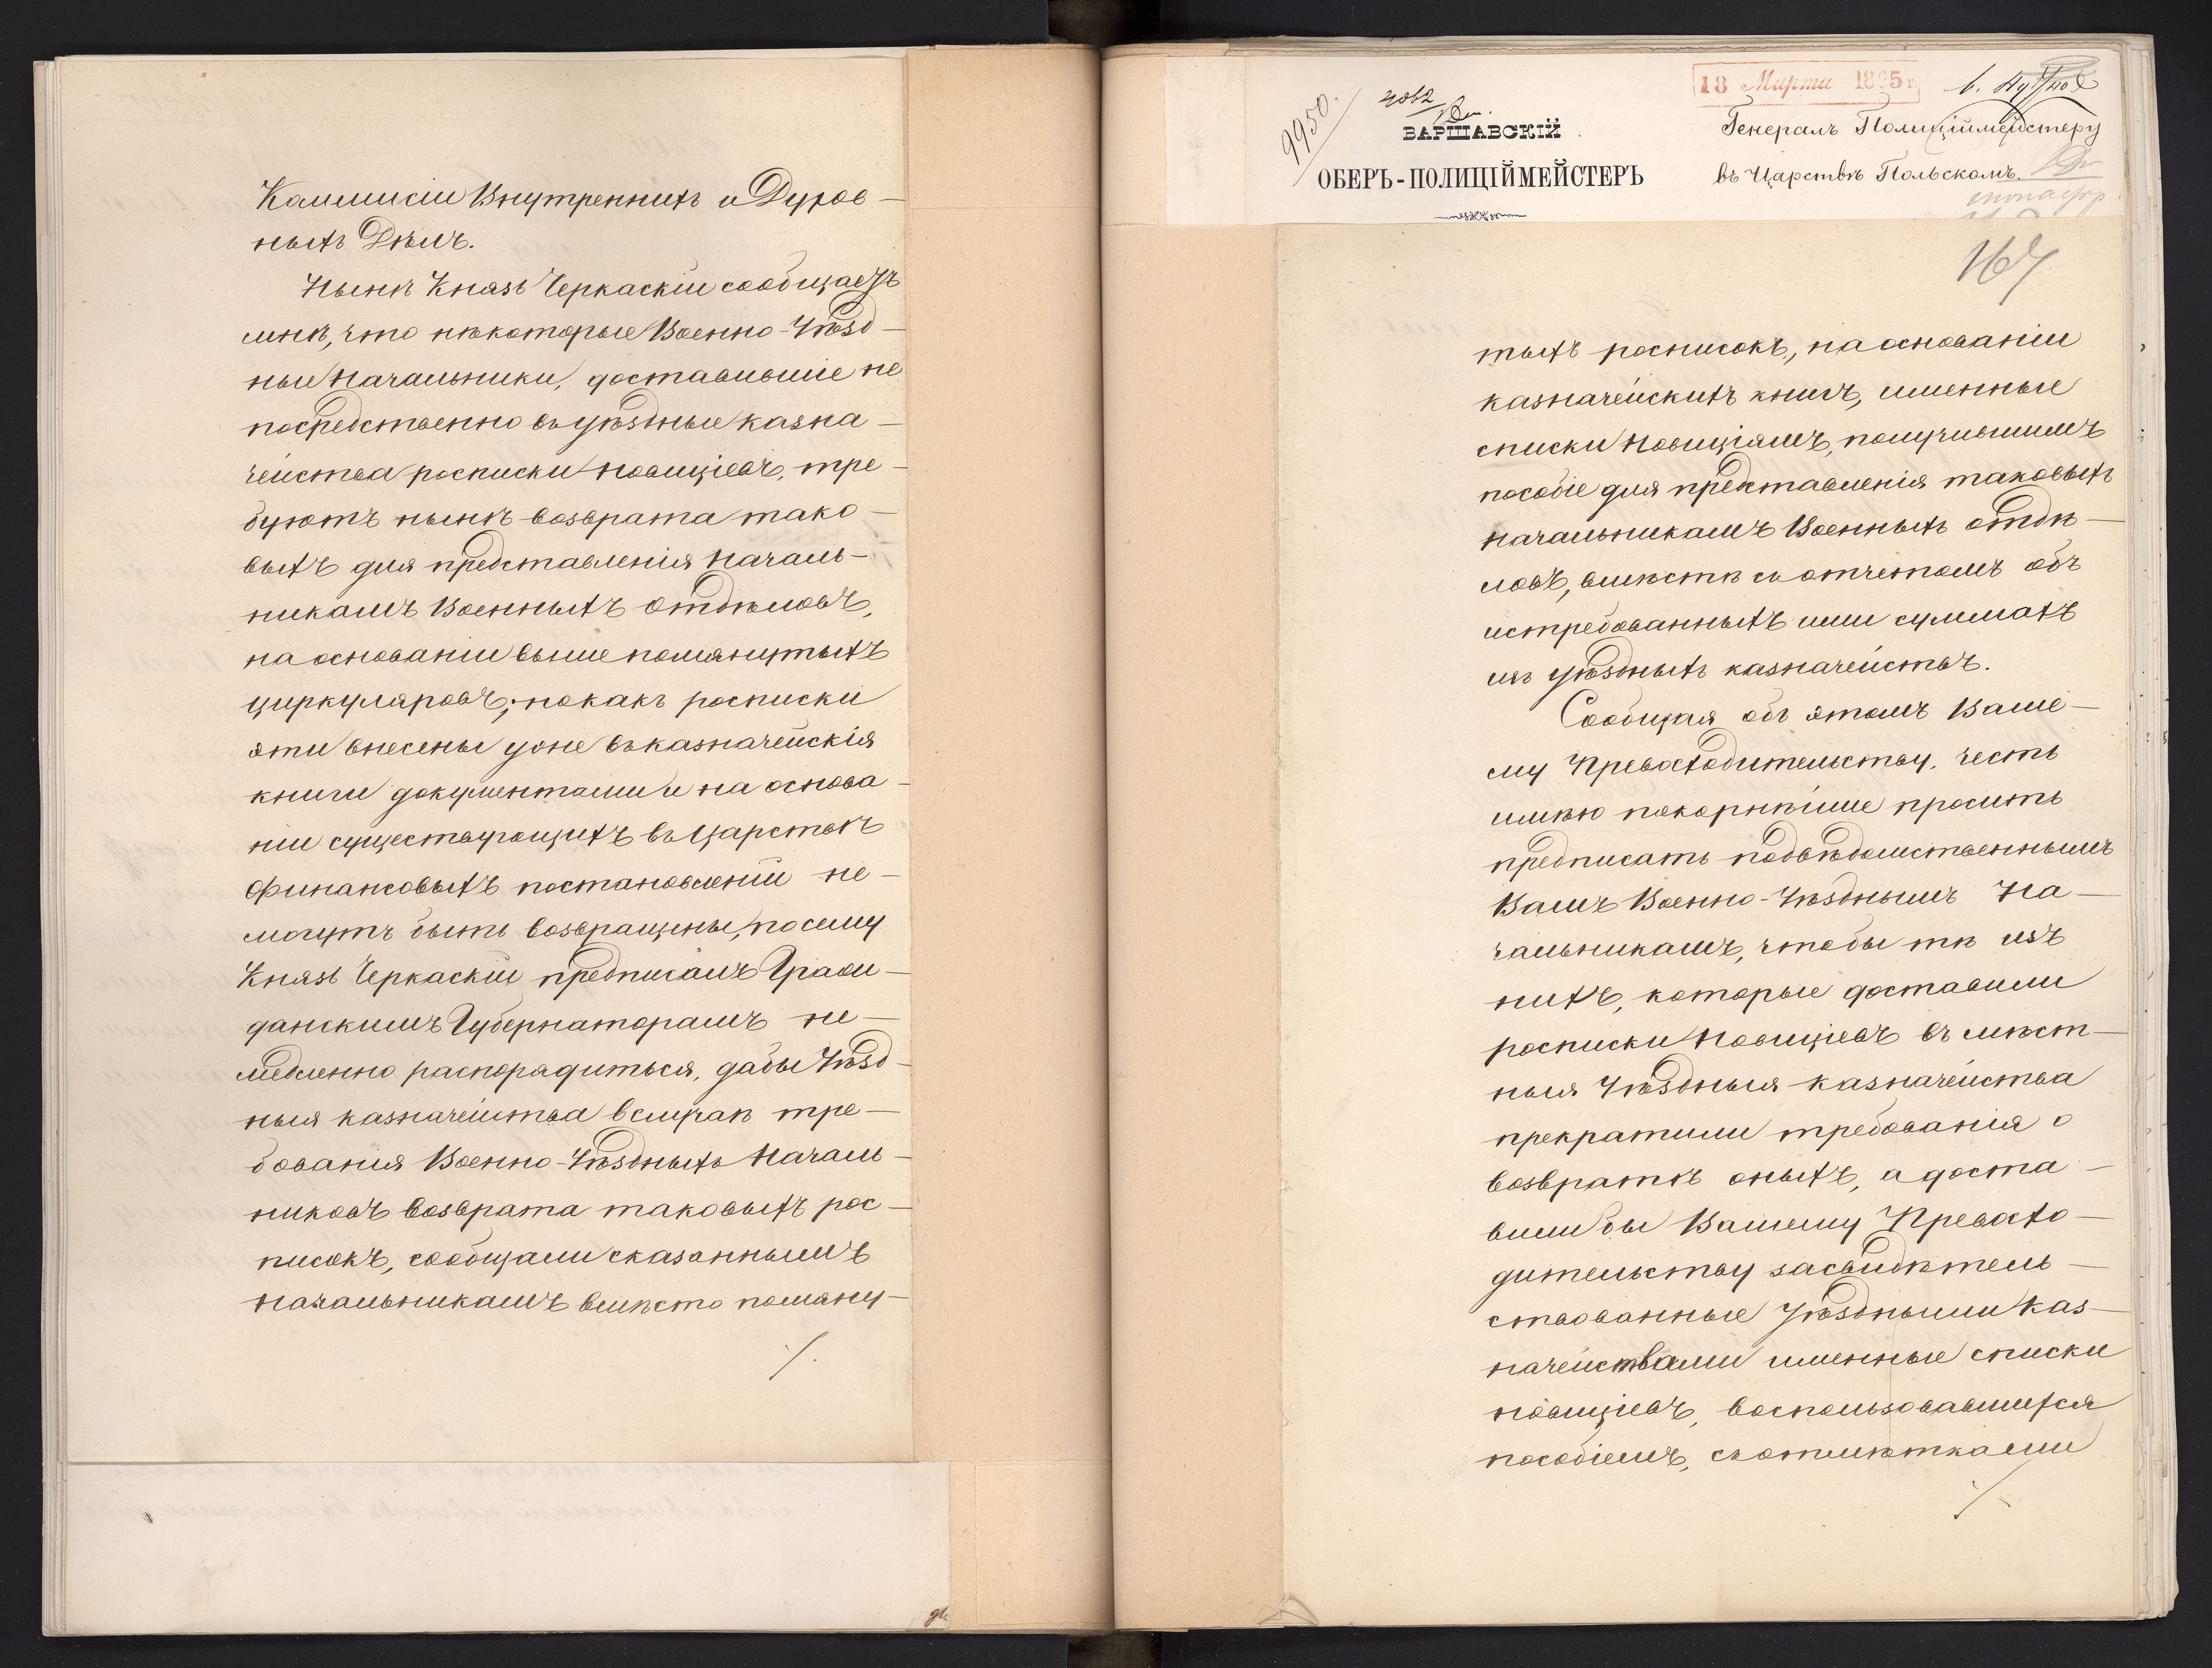 Коммисіи Внутреннихъ и Духов-
ныхъ Дѣлъ.
Нынѣ Князь Черкаскій сообщаетъ
мнѣ, что нѣкоторые Военно-Уѣзд-
ные Начальники, доставившіе не
посредственно въ уѣздные казна-
чейства росписки Новиціевъ, тре-
буютъ нынѣ возврата тако-
выхъ для представленія Началь-
никамъ Военныхъ Отдѣловъ,
на основаніи выше помянутыхъ
циркуляровъ; но какъ росписки
эти внесены уже въ казначейскія
книги документами и на основа-
ніи существующихъ въ Царствѣ
Финансовыхъ постановленій не-
могутъ быть возвращены, по сему
Князь Черкаскій предписалъ Граж-
данскимъ Губернаторамъ не-
медленно распорядиться, дабы Уѣзд-
ныя казначейства въ случаѣ тре-
бованія Военно-Уѣздныхъ Началь-
никовъ возврата таковыхъ рос-
писокъ, сообщали сказаннымъ
Начальникамъ вмѣсто помяну-
/.
18 Марта 1865 г.
9950.
ВАРШАВСКІЙ
ОБЕРЪ-ПОЛИЦІЙМЕЙСТЕРЪ
Генералъ Полиціймейстеру
въ Царствѣ Польскомъ.
167
тыхъ росписокъ, на основаніи
казначейскихъ книгъ, именные
списки Новиціямъ, получившимъ
пособіе для представленія таковыхъ
Начальникамъ Военныхъ Отдѣ-
ловъ, вмѣстѣ съ отчетомъ объ
истребованныхъ ими суммахъ
изъ уѣздныхъ казначействъ.
Сообщая объ этомъ Ваше-
му Превосходительству, честь
имѣю покорнѣйше просить
предписать подвѣдомственнымъ
Вамъ Военно-Уѣзднымъ На-
чальникамъ, чтобы тѣ изъ
нихъ, которые доставили
росписки Новиціевъ въ мѣст-
ныя Уѣздныя казначейства
прекратили требованія о
возвратѣ оныхъ, а доста-
вили бы Вашему Превосхо-
дительству засвидѣтель-
ствованные Уѣздными Каз-
начействами именные списки
новиціевъ, воспользовавшихся
пособіемъ, съ отмѣтками
/.